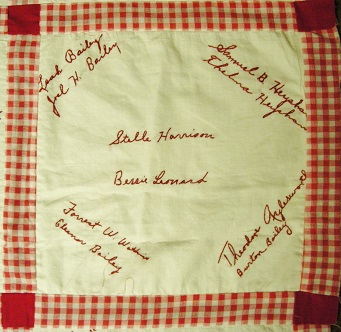 Leah Bailey
Joel H. Bailey
Samuel B. Heysham
Thelma Heysham
Stella Harrison
Bessie Leonard
Forrest W. Watkins
Eleanor Bailey
Theodore
Burton Bailey